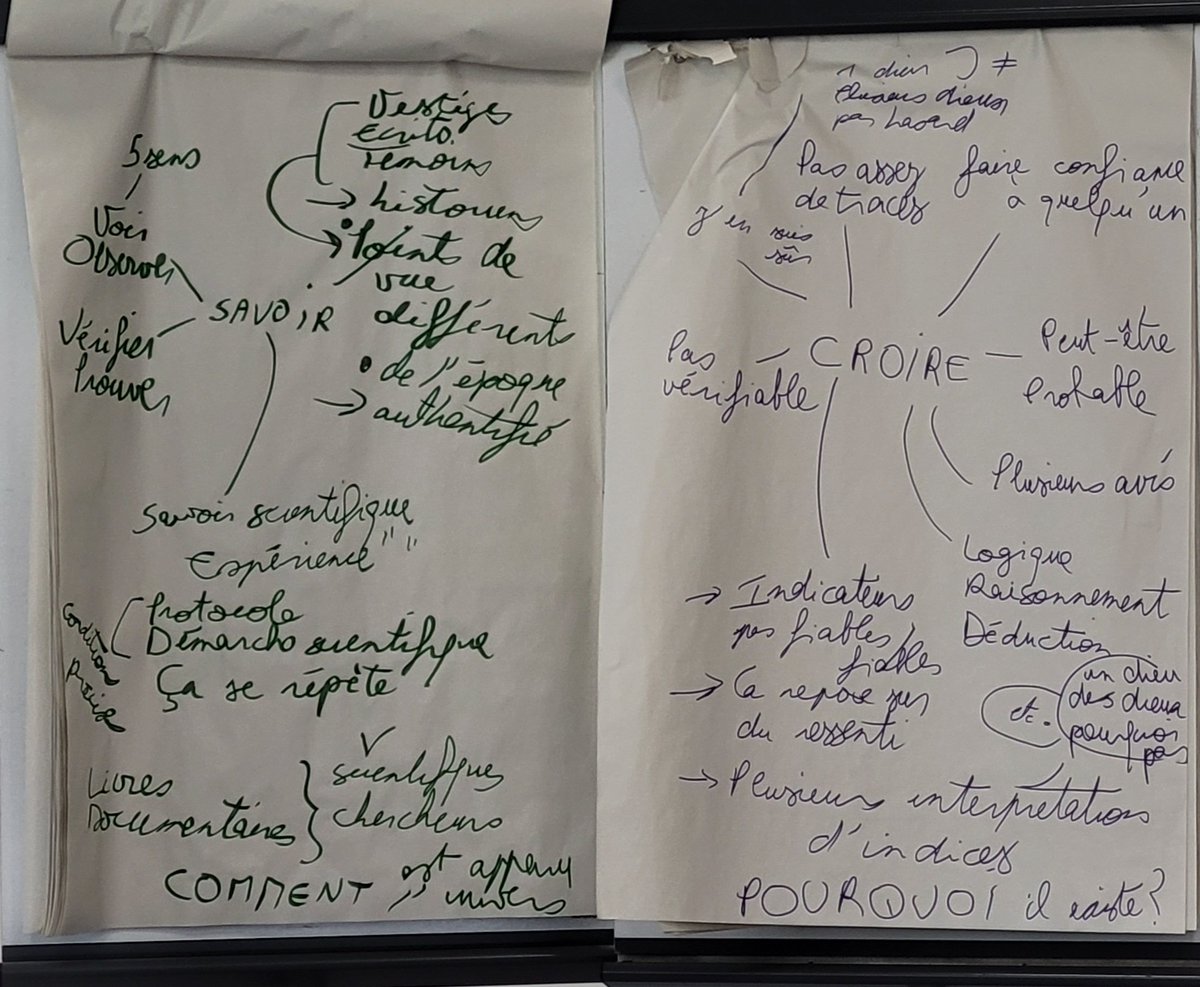 Vestiges
Ecrits
Témoins
→ historiens
5 sens
Voir
Observer
• Points de
vue
différents
SAVOIR
Vérifier
Prouver
• de l'époque
→ authentifié
Savoir scientifique
Expérience " "
Conditions
Protocole
Démarche scientifique
Ça se répète
Livres
Documentaires
scientifiques
chercheurs
COMMENT est apparu
univers
1 dieu ≠
Plusieurs dieux
pas hasard
Pas assez
de traces
faire confiance
à quelqu'un
J'en suis
sûr
CROIRE
Pas
vérifiable
Peut-être
Probable
Plusieurs avis
Logique
Raisonnement
Déduction
→ Indicateurs
pas fiables,
fiables
→ Ca repose sur
du ressenti
un dieu
des dieux
pourquoi
pas
→ Plusieurs interprétations
d'indices
POURQUOI il existe ?